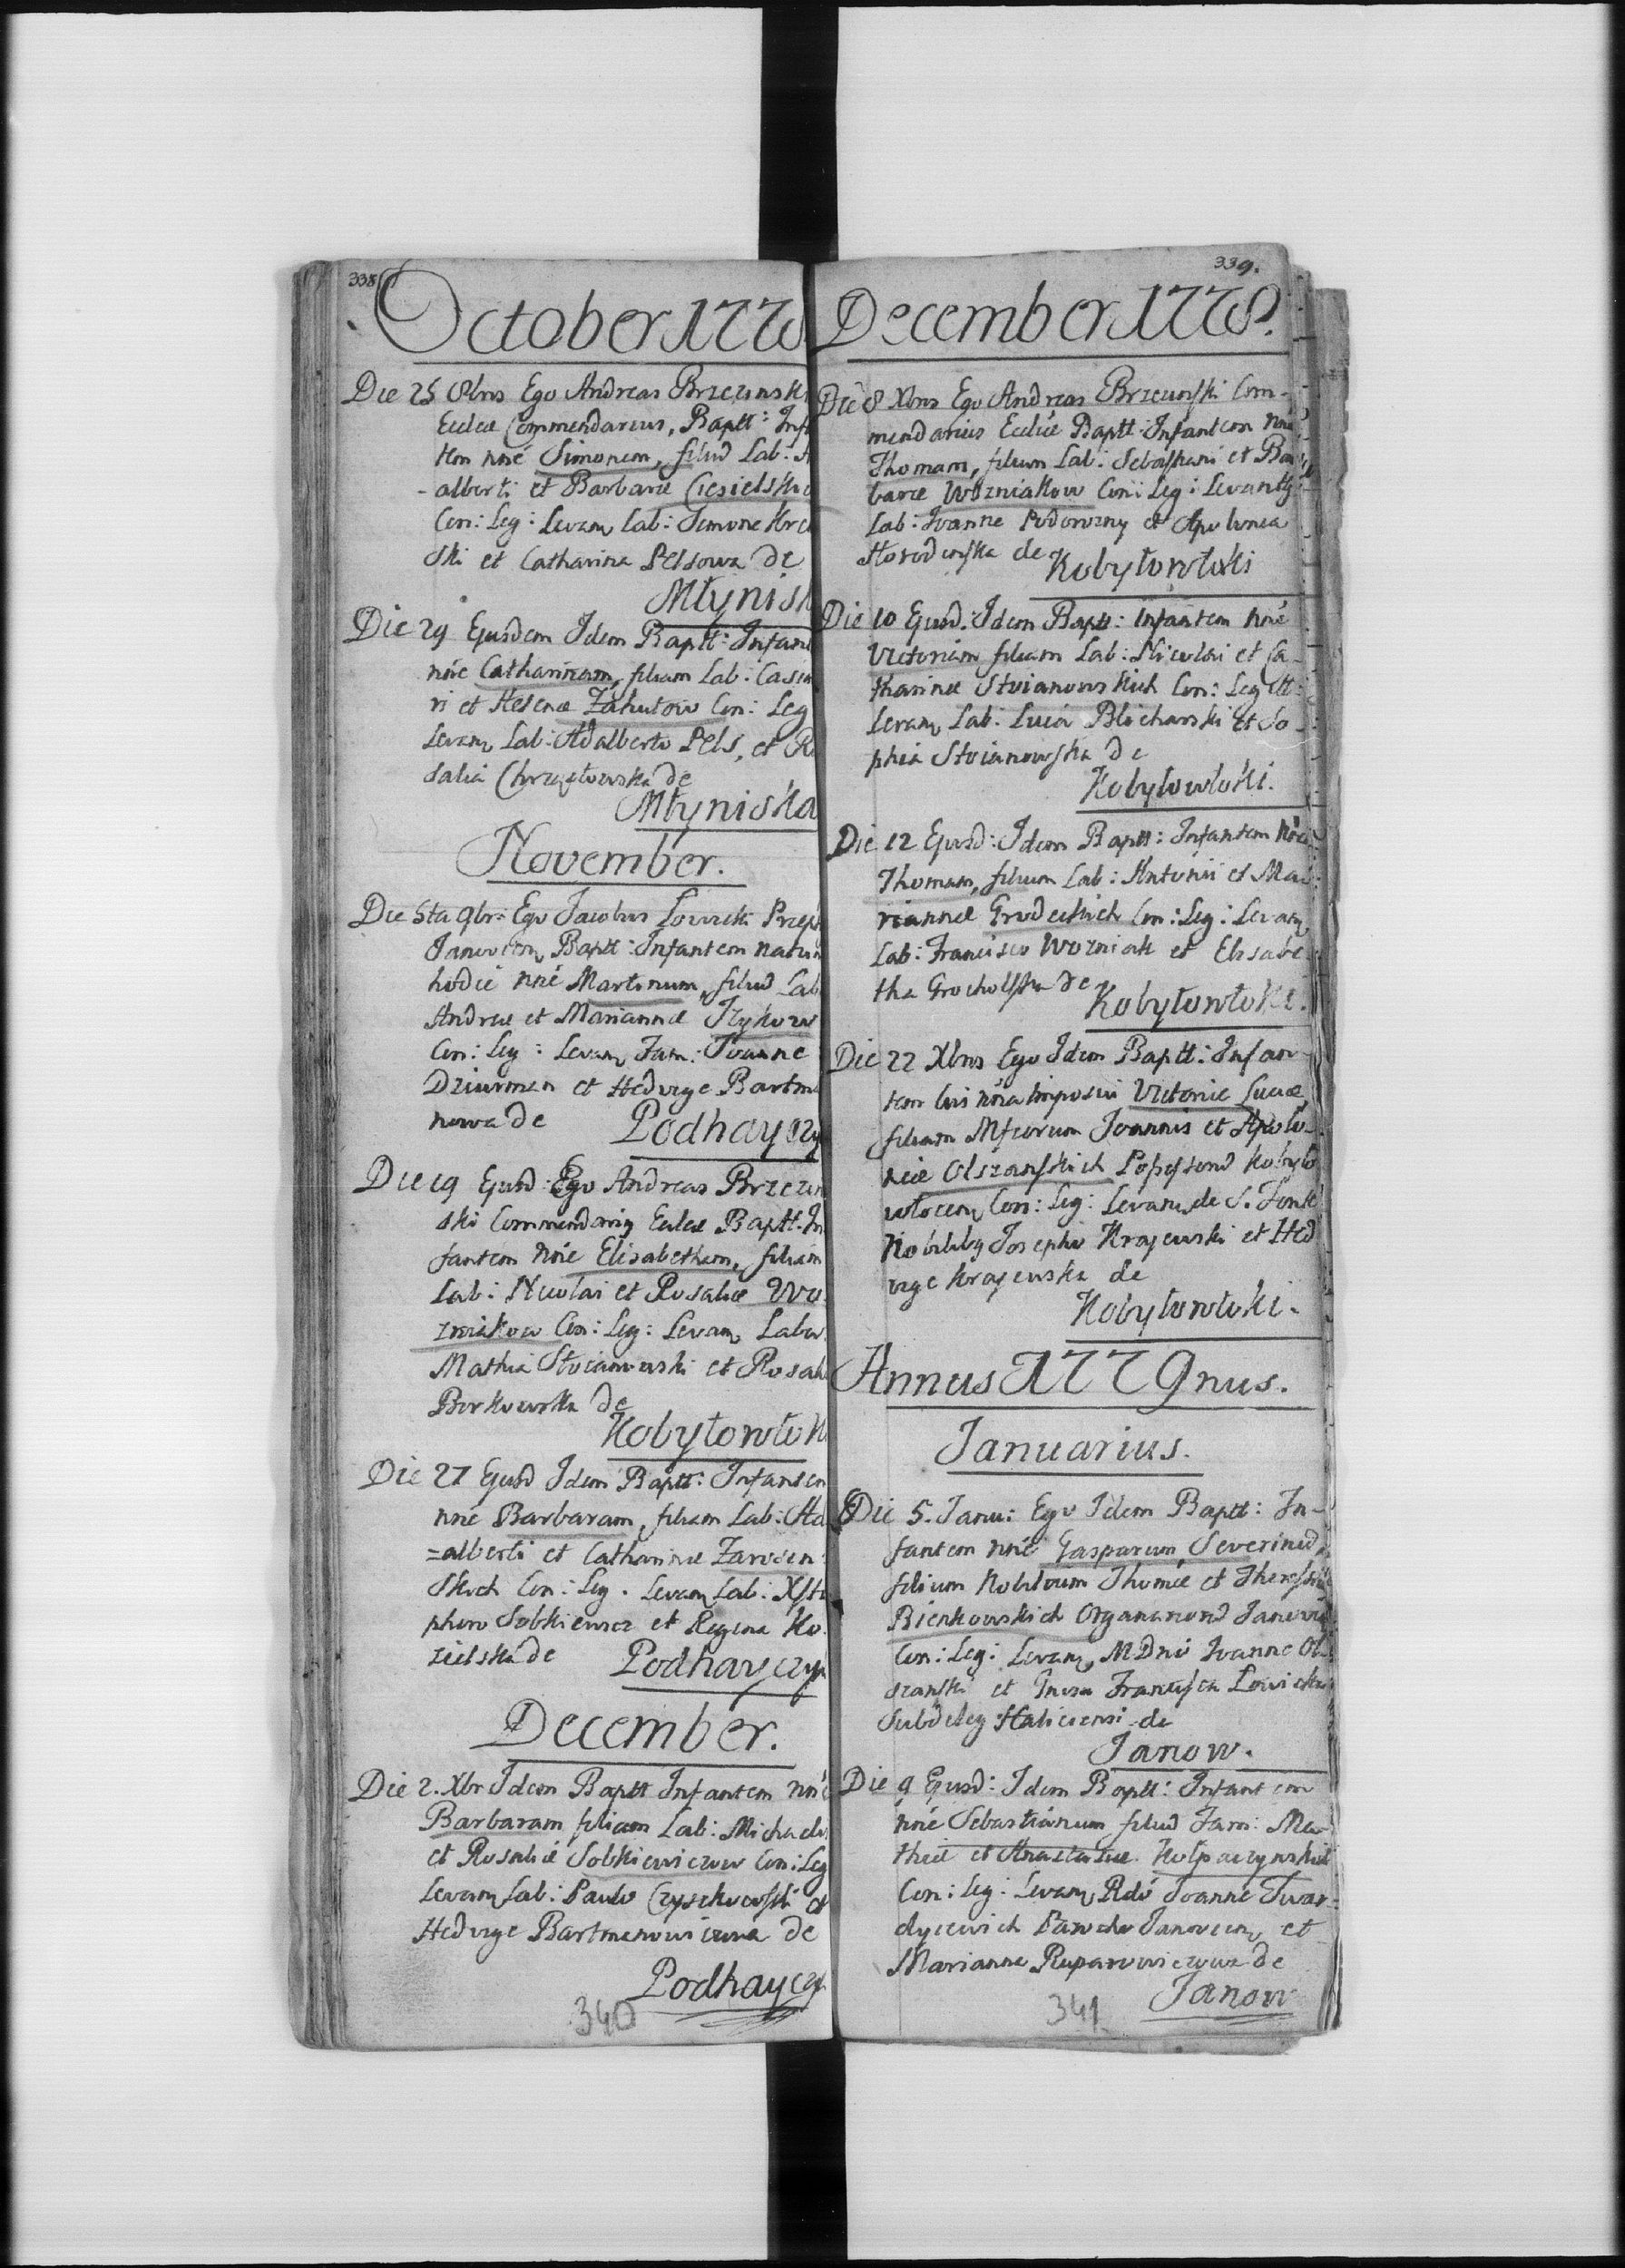 338
October 1778
Die 25 8bris Ego Andreas Brzezinski
Eccliae Commendarius, Baptt: Infa
tem nné Simonem, filiũ Lab: A
-alberti et Barbarae Ciesielskic
Con: Leg: Levan, Lab: Simone
ski et Catharina Pelsowa de
Młynisk
Die 29 Ejusdem Idem Baptt: Infant
nnée Catharinam, filiam Lab: Casim
ri et Helenae Zahutow Con: Leg
Levan, Lab: Adalberto Pels, et Ro
salia de
Młyniska
November.
Die 5ta 9br: Ego Jacobus Lowicki Praep
Janovien, Baptt: Infantem natum
hodie nné Martinum, filiũ Lab
Andreae et Mariannae
Con: Leg: Levan, Fam: Joanne
Dziurman et Hedvige Bartma
nowa de
Podhayczy
Die 19 Ejusd: Ego Andreas Brzezin
ski Commendariũ Eccliae Baptt: In
fantem nnie Elisabetham, filiam
Lab: Nicolai et Rosaliae Wo
zniakow Con: Leg: Levan, Labor
Mathia Stoianowski et Rosali
Borkowska de
Kobyłowłok
Die 27 Ejusd Idem Baptt: Infantem
nné Barbaram, filiam Lab: Ada
=alberti et Catharinae
Skich Con: Leg. Levan, Lab: Xsto
phoro Sobkiewicz et Regina Ko
zielska de
Podhayczyk
December.
Die 2. Xbr Idem Baptt Infantem nné
Barbaram filiam Lab: Michaelis
et Rosalié Sobkiewiczow Con: Leg
Levan, Lab: Paulo et
Hedvige Bartmanowiczowa de
Podhayczy
340
339.
December 1778.
Die 8 Xbris Ego Andreas Brzezinski Com-
mendarius Eccliae Baptt: Infantem nné
Thomam, filium Lab: Sebastiani et Bar
barae Wozniakow Con: Leg: Levantty
Lab: Joanne Podorozny et Apolonia
de
Kobyłowłoki
Die 10 Ejusd: Idem Baptt: Infantem nné
Victoriam filiam Lab: Nicolai et Ca
tharinae Stoianowskich Con: Leg tt:
Levan, Lab: Lucá Blicharski et So-
phia Stoianowska de
Kobyłowłoki.
Die 12 Ejusd: Idem Baptt: Infantem nné
Thomam, filium Lab: Antonii et Ma
riannae Grodeckich Con: Leg: Levan,
Lab: Francisco Wozniak et Elisabe
tha Grocholska de
Kobyłowłoki.
Die 22 Xbris Ego Idem Baptt: Infan-
tem cui nóia imposui Victoriae Luciae,
filiam Mficorum Joannis et Apolo-
niae Olszanskich Possessorũ Kobyło
włocen, Con: Leg: Levan, de S. Fonte
Nobilibg Josepho Krajewski et Hed
vige Krajewska de
Kobyłowłoki.
Annus 1779nus.
Januarius.
Die 5. Janu: Ego Idem Baptt: In-
fantem nné Gasparum Severinũ,
filium Nobilium Thomae et Theressiae
Bienkowskich Organarionũ Janovien
Con: Leg: Levan, M Dnõ Joanne Ol
szanski et Francisca Lowicka
Subdeleg Haliciensi de
Janow.
Die 9 Ejusd: Idem Baptt: Infantem
nné Sebastianum filiũ Fam: Ma
thiae et Anastasiae Kolpaczynskich
Con: Leg: Levan, Rdõ Joanne Twar-
dyiewich Parocho Janovien, et
Marianna Ruparowiczowa de
Janow
341